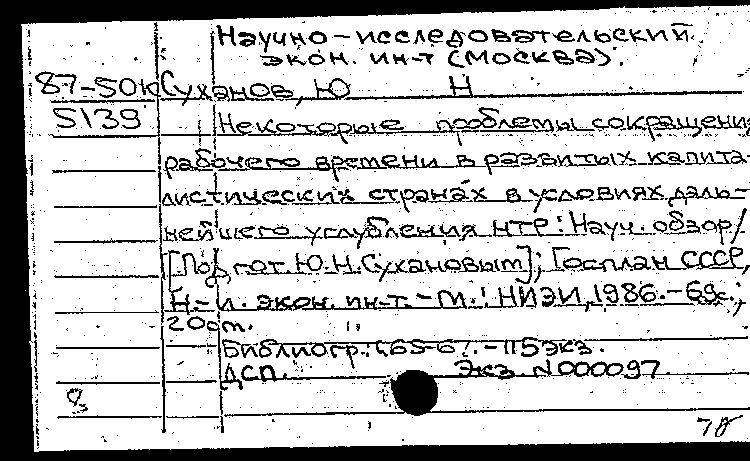 Научно-исследовательский
экон. ин-т (Москва).
87-50к Суханов, Ю Н
5139 Некоторые проблемы сокращения
рабочего времени в развитых капита-
листических странах в условиях даль-
нейшего углубления НТР: Науч. обзор/
[Подгот. Ю.Н.Сухановым]; Госплан СССР,
Н.-и. экон. ин-т.-М.: НИЭИ, 1986.-69с.;
20см.
Библиогр.: с.65-67.-115экз.
ДСП. Экз N000097
78